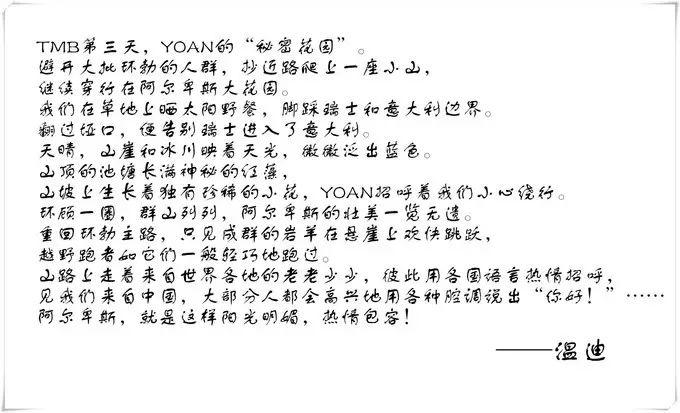 TMB第三天，YOAN的“秘密花园”。
避开大批环勃的人群，抄近路爬上一座小山，
继续穿行在阿尔卑斯大花园。
我们在草地上晒太阳野餐，脚踩瑞士和意大利边界。
翻过垭口，便告别瑞士进入了意大利。
天晴，山崖和冰川映着天光，微微泛出蓝色。
山顶的池塘长满神秘的红藻，
山坡上生长着独有珍稀的小花，YOAN招呼着我们小心绕行。
环顾一圈，群山列列，阿尔卑斯的壮美一览无遗。
重回环勃主路，只见成群的岩羊在悬崖上欢快跳跃，
越野跑者如它们一般轻巧地跑过。
山路上走着来自世界各地的老老少少，彼此用各国语言热情招呼，
见我们来自中国，大部分人都会高兴地用各种腔调说出“你好！”……
阿尔卑斯，就是这样阳光明媚，热情包容！
——温迪